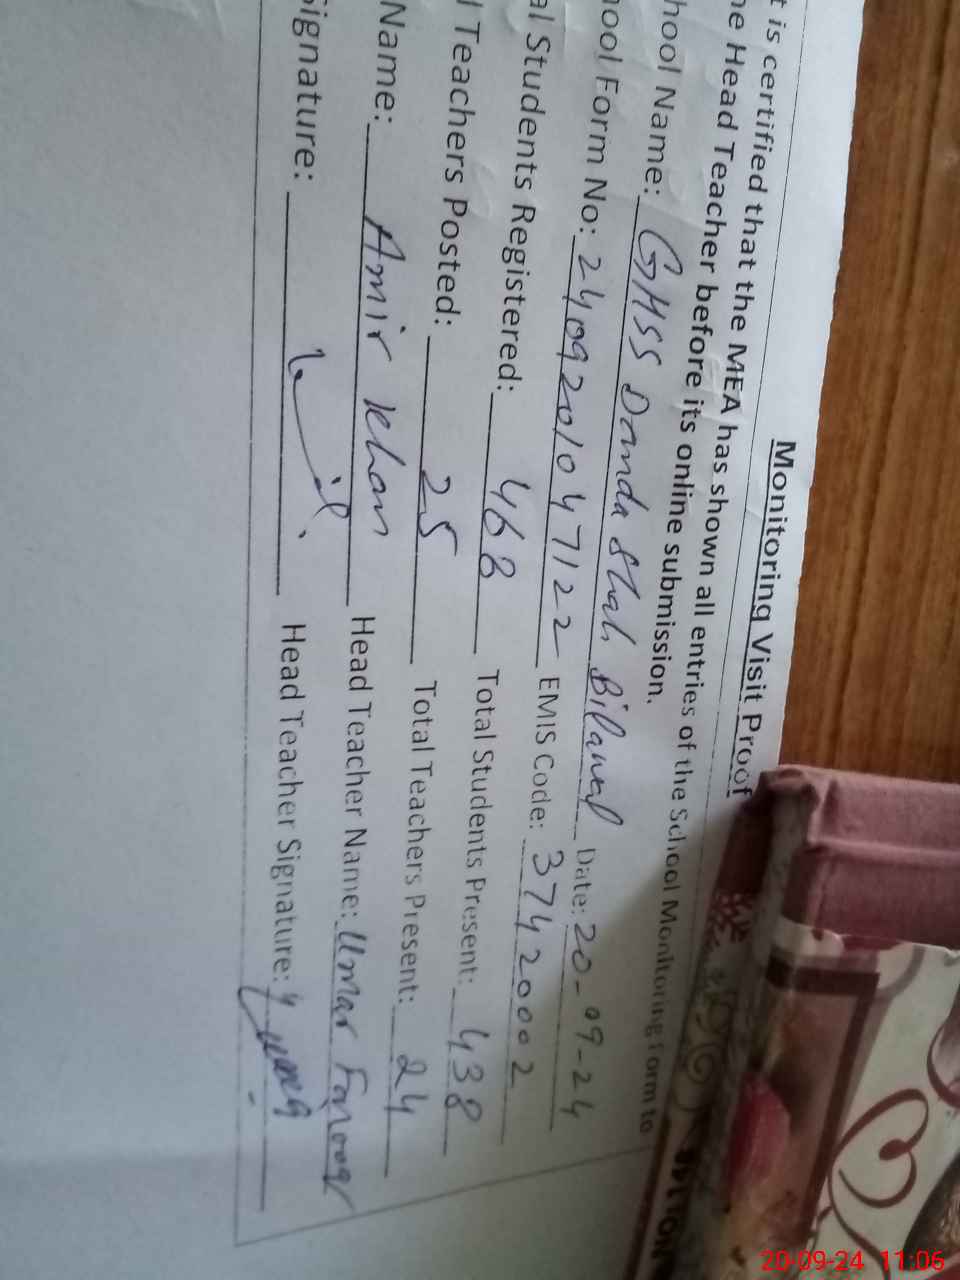 Monitoring Visit Proof
t is certified that the MEA has shown all entries of the School Monitoring Form to
he Head Teacher before its online submission.
hool Name: GHSS Danda Shah Bilawal Date: 20-09-24
hool Form No: 2409201047122 EMIS Code: 37420002
al Students Registered: 468 Total Students Present: 438
l Teachers Posted: 25 Total Teachers Present: 24
Name: Amir Khan Head Teacher Name: Umar Farooq
ignature: Head Teacher Signature:
20-09-24 11:06